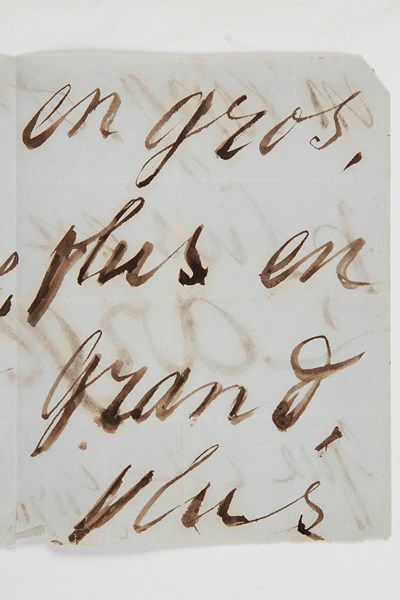 en gros,
plus en
grand,
plus